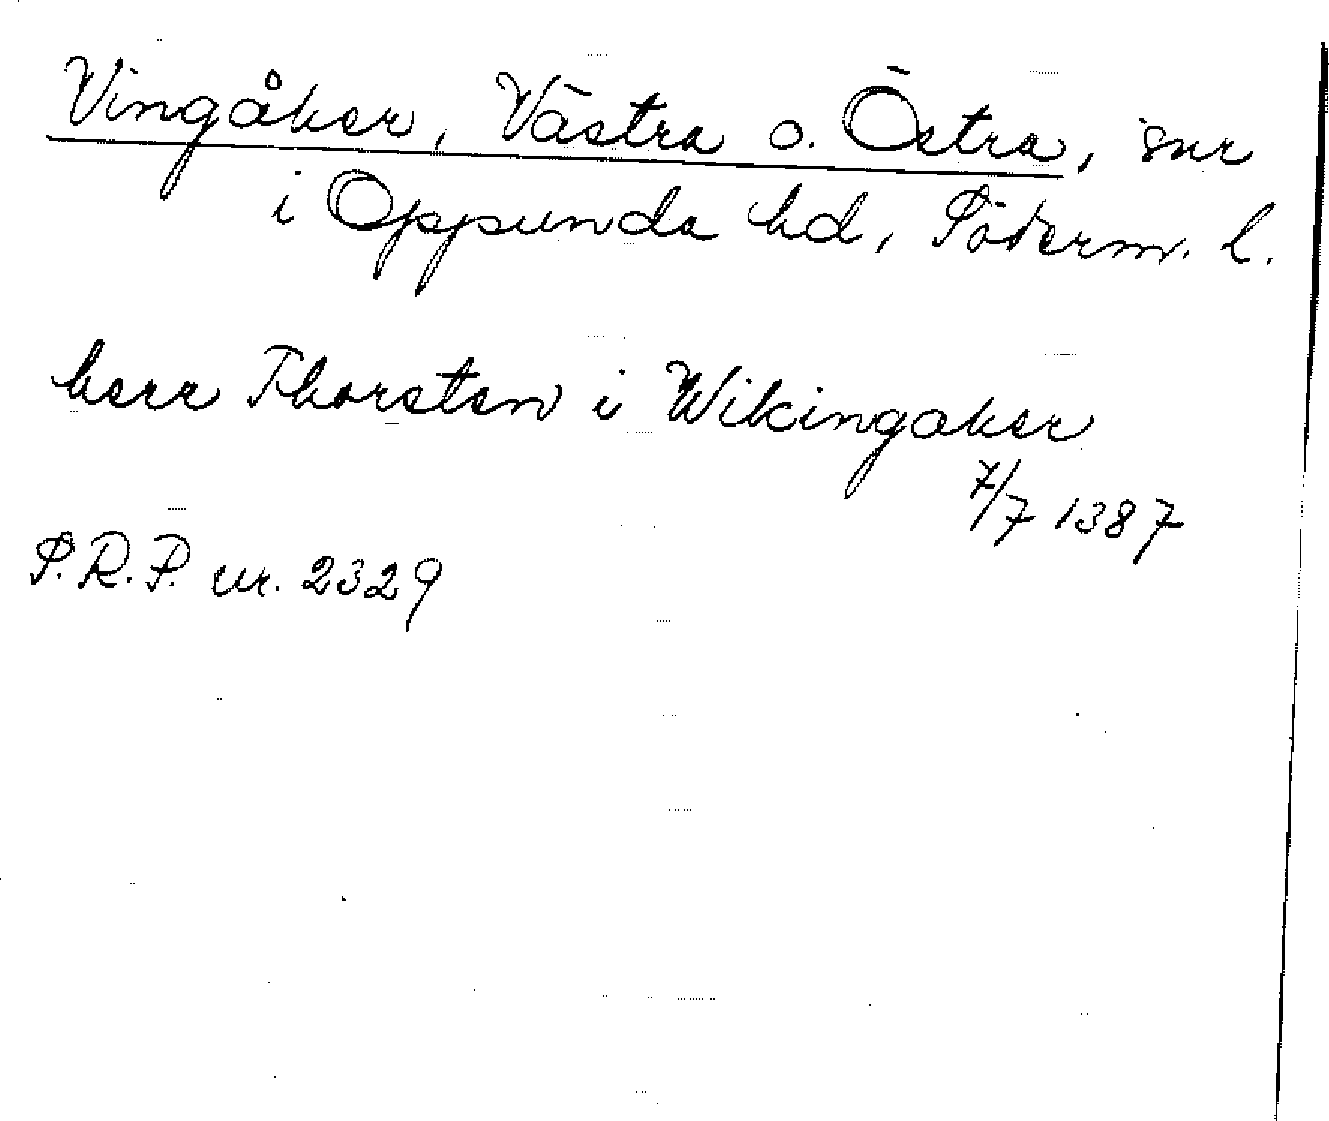 Vingåker, Västra o. Östra, snr
i Oppunda hd, Söderm. l.
herr Thorsten i Wikingaker
7/7 1387
S.R.P. nr. 2329